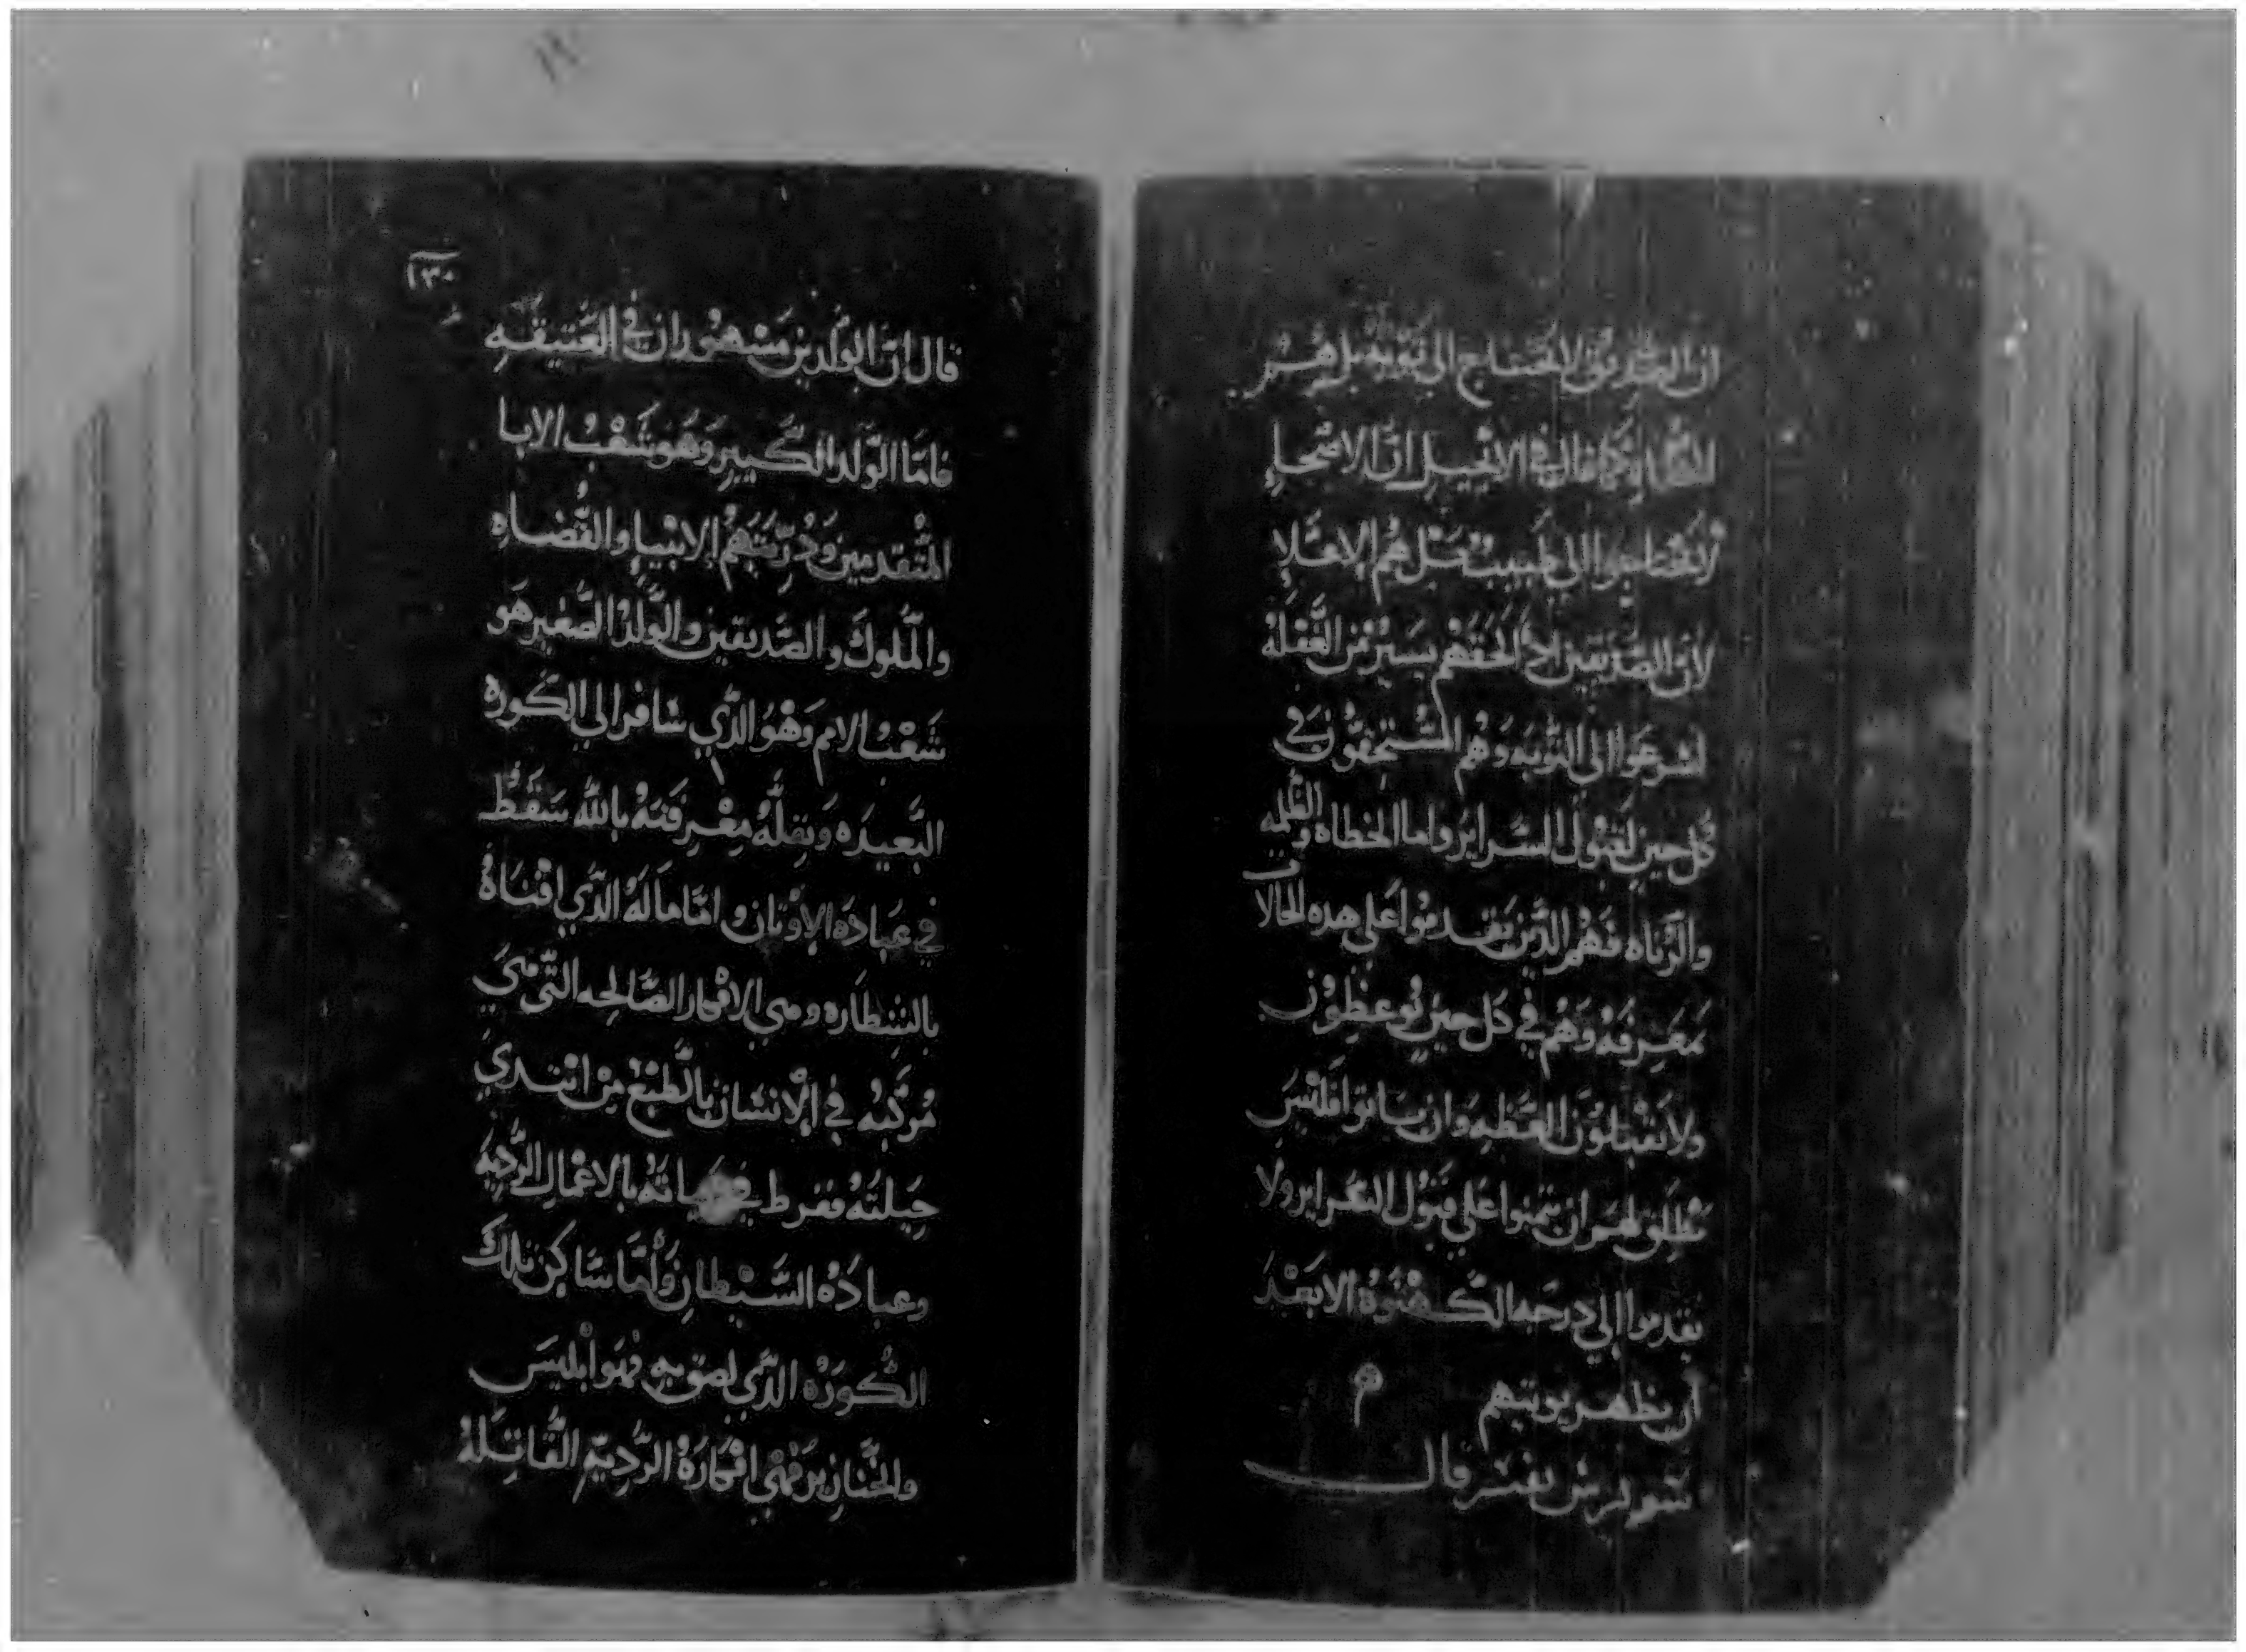 ان الصديق لا يحتاج الى توبه بل هم
الخطاه وكما قال في الانجيل ان الاصحاء
لا يحتاجوا الى طبيب بل هم الاعلا
لان الصديقين اذا لحقهم يسير من الغفله
اسرعوا الى التوبه وهم المستحقون في
كل حين لقبول السراير واما الخطاه والظلمه
والزناه فهم الذين تقدموا على هذه الحالات
بمعرفه وهم في كل حين يوعظون
ولا يقبلون العظه وان تابوا فليس
نطلق لهم ان يتهنوا على قبول السراير ولا
يقدموا الي درجه الكهنوة الا بعد
ان يظهر توبتهم م
سويرس يفسر قال
١٣٠
قال ان الولدين مشهوران في العتيقه
فاما الولد الكبير وهو شعب الابا
المتقدمين وذريتهم الانبيا والقضاه
والملوك والصديقين والولد الصغير هو
شعب الامم وهو الذي سافر الي الكوره
البعيده وبقلة معرفته بالله سقط
في عبادة الاوثان واما ماله الذي اقناه
بالشطاره وهي الافكار الصالحه التي هي
مركبه في الانسان بالطبع من ابتدي
جبلته ففرط في حياته بالاعمال الرديه
وعبادة الشيطان واما ساكن تلك
الكوره الذي لصق به فهو ابليس
والخنازير فهي افكاره الرديه القاتله